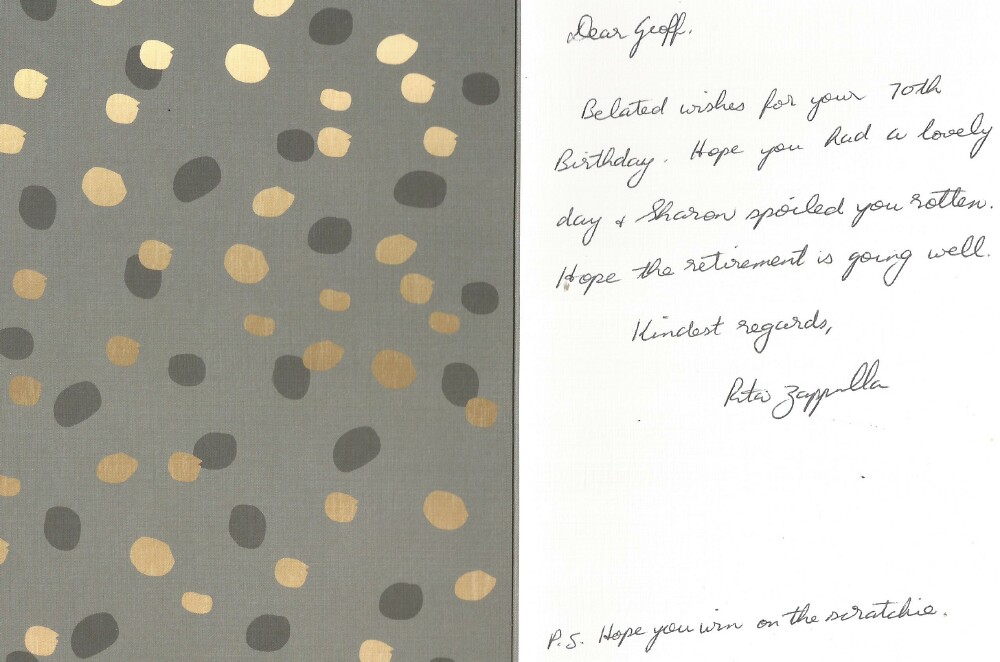 Dear Geoff.
Belated wishes for your 70th
Birthday. Hope you had a lovely
day & Sharon spoiled you rotten.
Hope the retirement is going well.
Kindest regards,
Rita Zappulla
P.S. Hope you win on the scratchie.